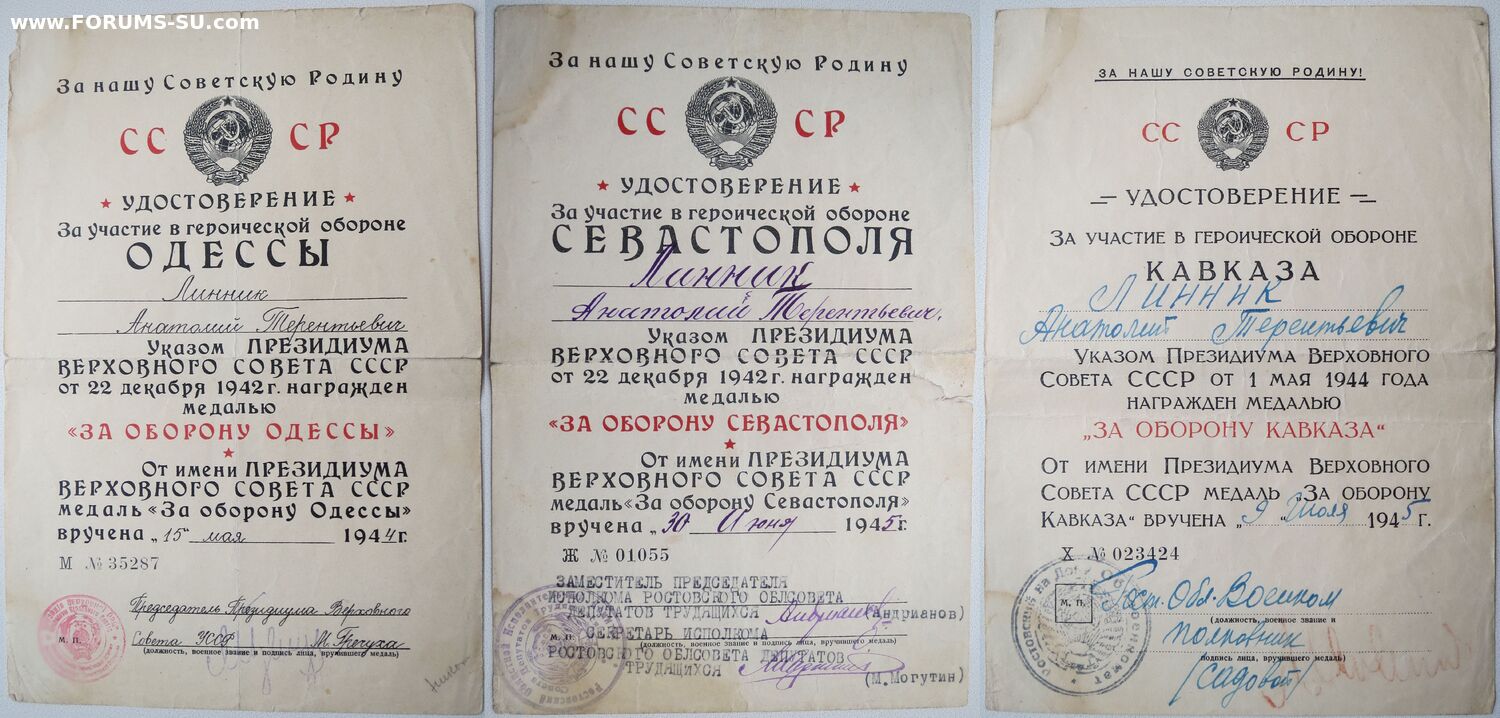 www.FORUMS-SU.com
За нашу Советскую Родину
СС СР
УДОСТОВЕРЕНИЕ
За участие в героической обороне
ОДЕССЫ
Линник
Анатолий Терентьевич
Указом ПРЕЗИДИУМА
ВЕРХОВНОГО СОВЕТА СССР
от 22 декабря 1942 г. награжден
медалью
«ЗА ОБОРОНУ ОДЕССЫ»
От имени ПРЕЗИДИУМА
ВЕРХОВНОГО СОВЕТА СССР
медаль «За оборону Одессы»
вручена „15" мая 1944 г.
М № 35287
Председатель Президиума Верховного
м. п. Совета УССР М. Гречуха
(должность, военное звание и подпись лица, вручившего медаль)
За нашу Советскую Родину
СС СР
УДОСТОВЕРЕНИЕ
За участие в героической обороне
СЕВАСТОПОЛЯ
Линник
Анатолий Терентьевич.
Указом ПРЕЗИДИУМА
ВЕРХОВНОГО СОВЕТА СССР
от 22 декабря 1942 г. награжден
медалью
«ЗА ОБОРОНУ СЕВАСТОПОЛЯ»
От имени ПРЕЗИДИУМА
ВЕРХОВНОГО СОВЕТА СССР
медаль «За оборону Севастополя»
вручена „30 Июня 1945 г.
Ж № 01055
ЗАМЕСТИТЕЛЬ ПРЕДСЕДАТЕЛЯ
ИСПОЛКОМА РОСТОВСКОГО ОБЛСОВЕТА
ДЕПУТАТОВ ТРУДЯЩИХСЯ (Андрианов)
м. п. СЕКРЕТАРЬ ИСПОЛКОМА
(должность, военное звание и подпись лица, вручившего медаль)
РОСТОВСКОГО ОБЛСОВЕТА ДЕПУТАТОВ
ТРУДЯЩИХСЯ
(М.Могутин)
ЗА НАШУ СОВЕТСКУЮ РОДИНУ!
СС СР
УДОСТОВЕРЕНИЕ
ЗА УЧАСТИЕ В ГЕРОИЧЕСКОЙ ОБОРОНЕ
КАВКАЗА
Линник
Анатолий Терентьевич
УКАЗОМ ПРЕЗИДИУМА ВЕРХОВНОГО
СОВЕТА СССР ОТ 1 МАЯ 1944 ГОДА
НАГРАЖДЕН МЕДАЛЬЮ
„ЗА ОБОРОНУ КАВКАЗА“
ОТ ИМЕНИ ПРЕЗИДИУМА ВЕРХОВНОГО
СОВЕТА СССР МЕДАЛЬ „ЗА ОБОРОНУ
КАВКАЗА“ ВРУЧЕНА „9“ Июля 1945 г.
Х № 023424
Рост. Обл. Военком
М. П.
(должность, военное звание и
полковник
подпись лица, вручившего медаль)
(Садовой)